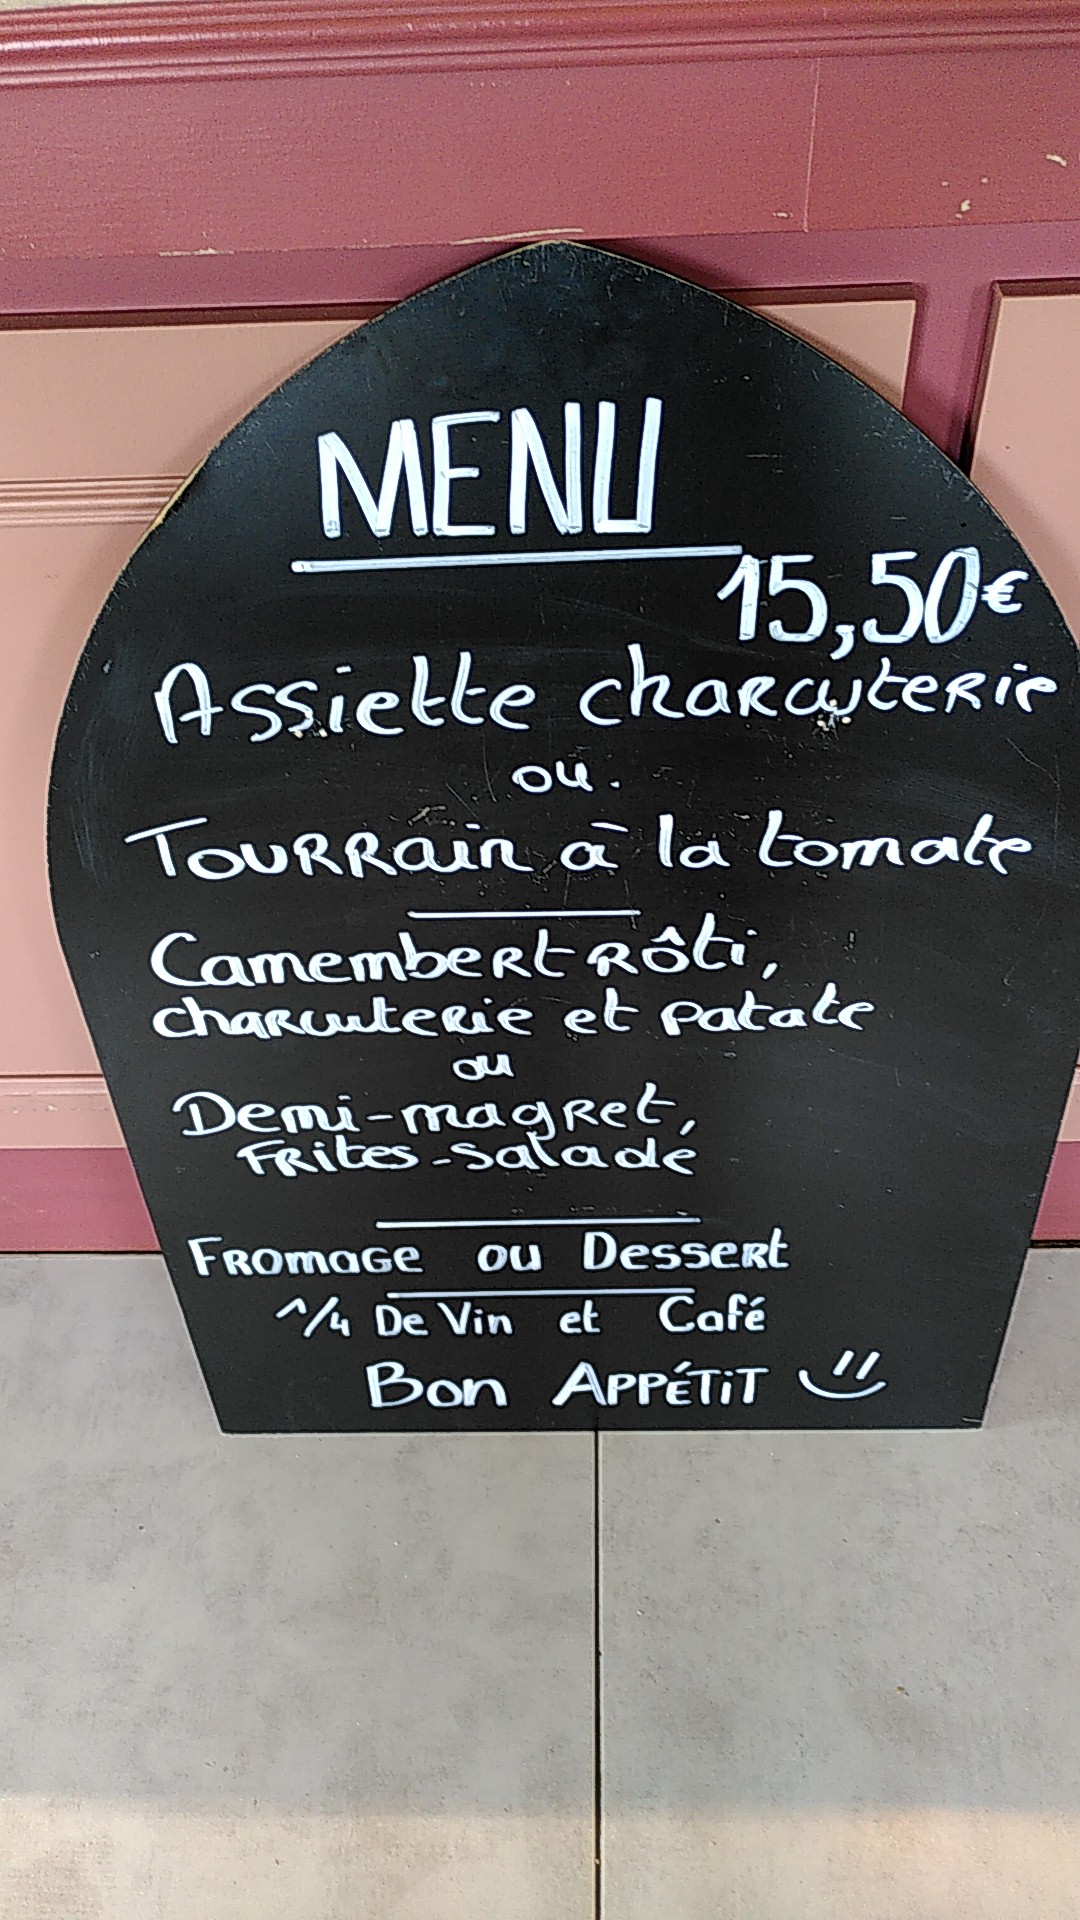 MENU
15,50€
Assiette charcuterie
ou.
Tourrain à la tomate
Camembert rôti,
charcuterie et patate
ou
Demi-magret,
Frites-salade
Fromage ou Dessert
1/4 De Vin et Café
Bon Appétit